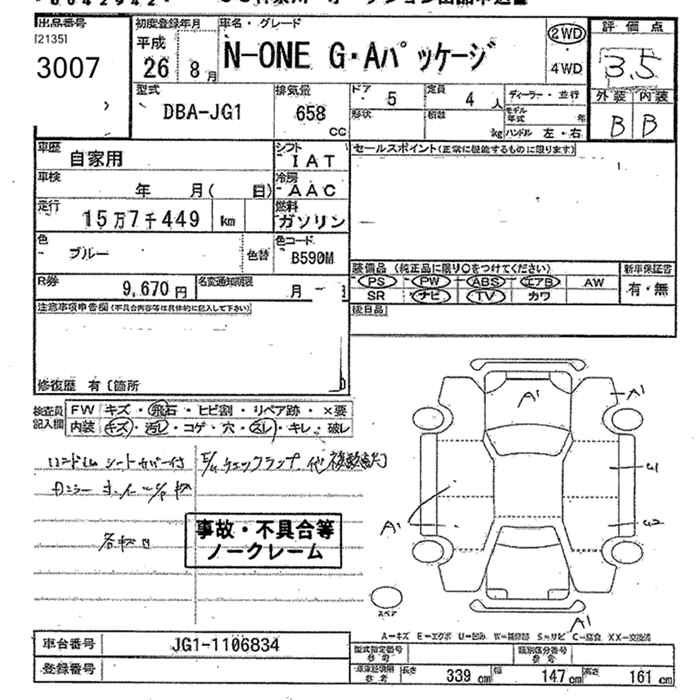 出品番号
[2135]
3007
初度登録年月
平成
26 8月
車名・グレード
N-ONE G・Aパッケージ
2WD
4WD
評価点
3.5
外装 内装
B B
型式
DBA-JG1
排気量
658
cc
ドア 5
定員 4人
形状
積載 kg
ディーラー・並行
モデル年式 年
ハンドル 左・右
車歴
自家用
シフト
IAT
セールスポイント(正常に機能するものに限ります)
車検
年 月( 日)
冷房
AAC
走行
15万7千449 km
燃料
ガソリン
色
ブルー
色替
色コード
B590M
装備品 (純正品に限り○をつけてください)
PS PW ABS エアB AW
SR ナビ TV カワ
新車保証書
有・無
R券
9,670円
名変通知期限
月
後日品
注意事項申告欄(不具合内容等は具体的に記入して下さい)
修復歴 有〔箇所
検査員記入欄
FW キズ・飛石・ヒビ割・リペア跡・×要
内装 キズ・汚レ・コゲ・穴・スレ・キレ・破レ
シートカバー付
E/gチェックランプ 他複数
事故・不具合等
ノークレーム
A1
A1
A1
A1
スペア
A−キズ E−エクボ U−凹み W−補修跡 S−サビ C−腐食 XX−交換済
車台番号
JG1-1106834
登録番号
型式指定番号
参考
類別区分番号
参考
参考
長さ 339cm 幅 147cm 高さ 161cm